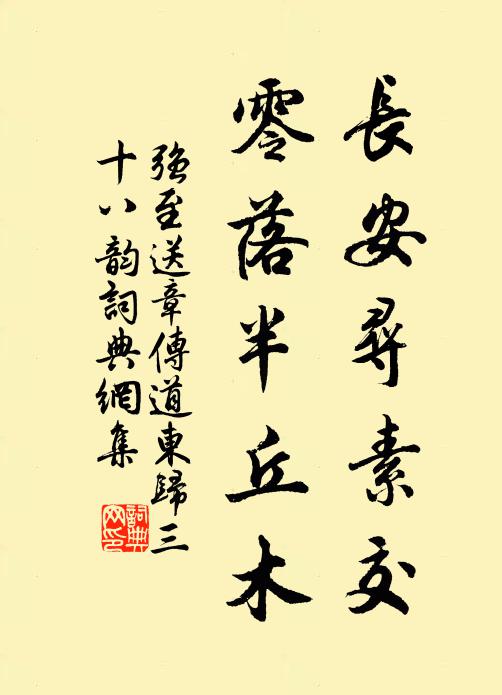 長安尋素交
零落半丘木
強至送章傳道東歸三
十八韵詞典網集
詞典
网印